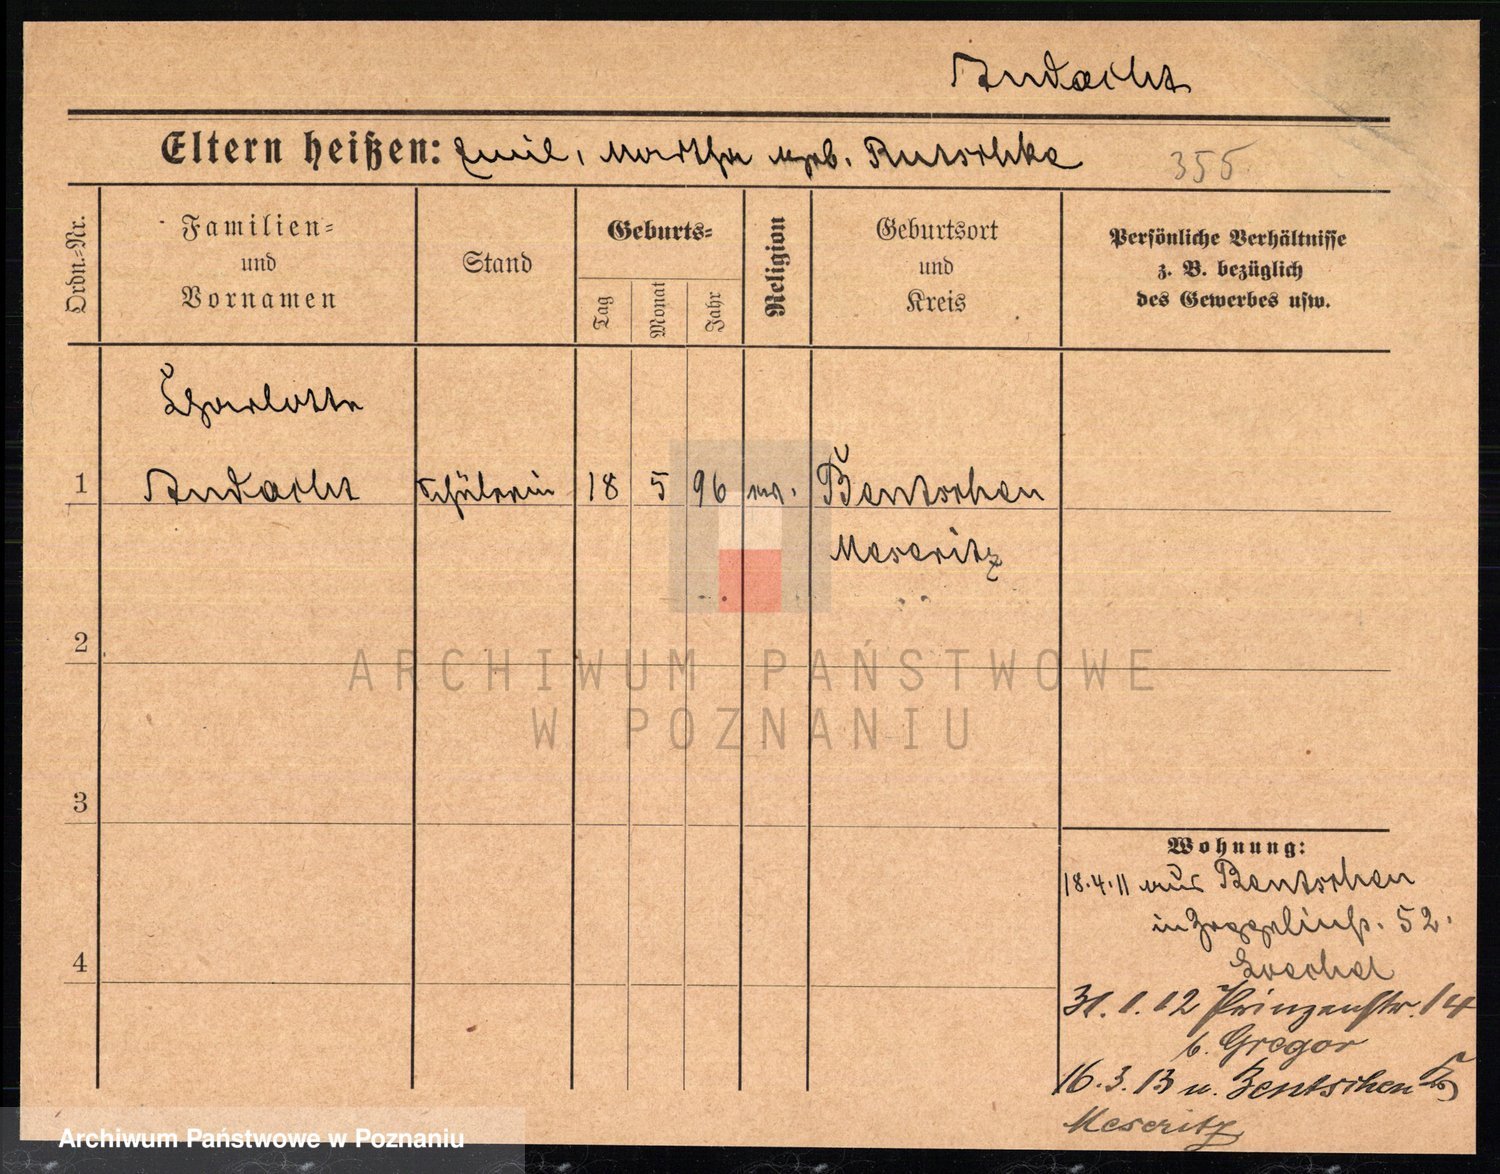 Andacht
Eltern heißen: Emil, Martha geb. Rutschke
355
Ordn.=Nr.
Familien=
und
Vornamen
Stand
Geburts=
Tag
Monat
Jahr
Religion
Geburtsort
und
Kreis
Persönliche Verhältnisse
z. B. bezüglich
des Gewerbes usw.
Charlotte
1 Andacht Schülerin 18 5 96 ev. Bentschen
Meseritz
2
ARCHIWUM PAŃSTWOWE
W POZNANIU
3
Wohnung:
18.4.11 aus Bentschen
in 52.
4
31.1.12 Prinzenstr. 14
b. Gregor
16.3.13 n. Bentschen
Meseritz
Archiwum Państwowe w Poznaniu